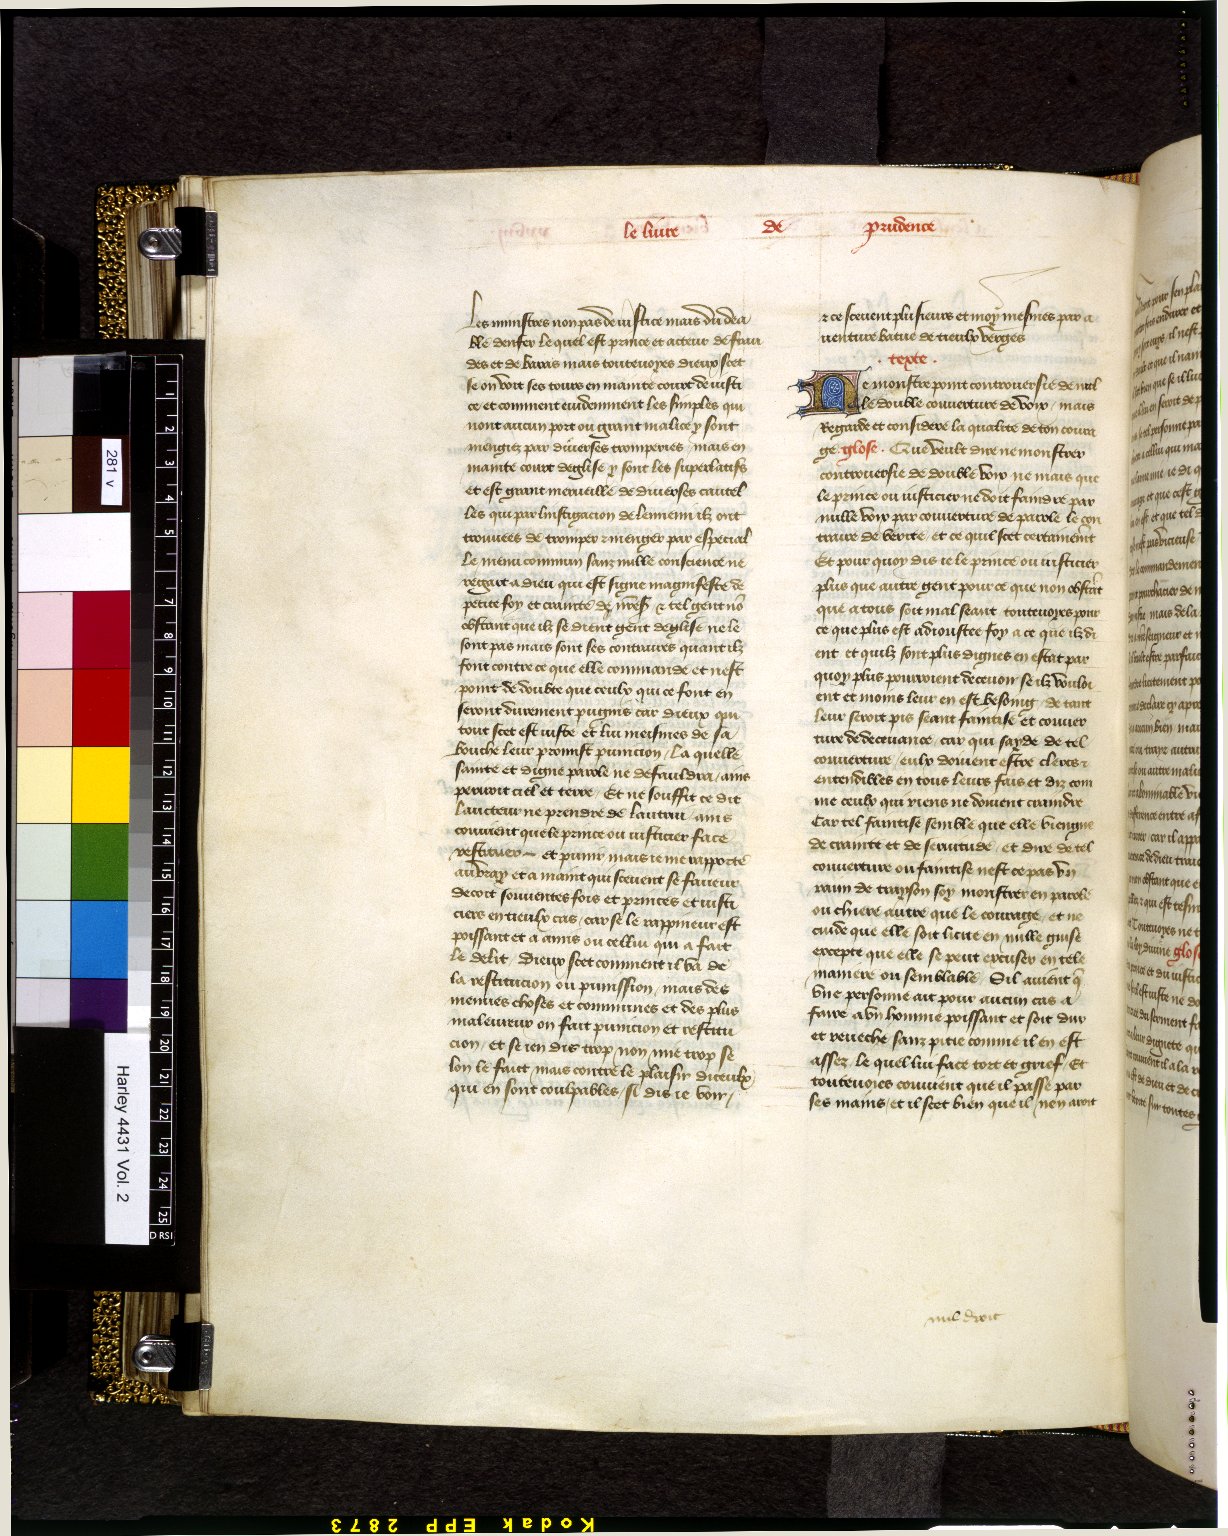 le liure de prudence
Les ministres non pas de iustice mais du dea
ble denfer le quel est prince et acteur de frau
des et de baras mais touteuoyes dieux scet
se on voit ses tours en mainte court de iusti
ce et comment euidemment les simples qui
nont aucun port ou grant malice y sont
mengiez par diuerses tromperies mais en
mainte court deglise y sont les superlatifs
et est grant merueille de diuerses cautel
les qui par linstigacion de lennemi ilz ont
trouuees de tromper ⁊ menger par especial
Le menu commun sanz nulle conscience ne
regart a dieu qui est signe magnifeste de
petite foy et crainte de ⁊ tel gent nō
obstant que ilz se dient gent deglise ne le
sont pas mais sont ses contraires quant ilz
font contre ce que elle commande et nest
point de doubte que ceulx qui ce font en
seront durement pugnis car dieux qui
tout scet est iuste et lui meismes de sa
bouche leur promist punicion / La quelle
sainte et digne parole ne defauldra / ains
periroit ciel et terre / Et ne souffit ce dit
laucteur ne prendre de lautrui / ains
conuient que le prince ou iusticier face
restituer et punir mais ie me rapporte
au vray et a maint qui sceuent se faueur
decoit souuentes fois et princes et iusti
ciers en tieulx cas / car se le rappineur est
poissant et a amis ou cellui qui a fait
le delit / Dieux scet comment il va de
la restitucion ou punission / mais des
menues choses et communes et des plus
maleureux on fait punicion et restitu
cion / et se ien dis trop / non mie trop se
lon le fait / mais contre le plaisir diceulx
qui en sont coulpables / si dis ie voir /
⁊ ce sceuent plusieurs et moy mesmes par a
uenture batue de tieulx verges
. texte .
Ne monstre point controuersie de nul
le double couuerture de voix / mais
Regarde et considere la qualite de ton coura
ge . glose . Que veult dire ne monstrer
controuersie de double voix ne mais que
le prince ou iusticier ne doit faindre par
nulle voix par couuerture de parole le con
traire de verite / et ce quil scet certainemēt
Et pour quoy dis ie le prince ou iusticier
plus que autre gent pour ce que non obstāt
que a tous soit mal seant touteuoyes pour
ce que plus est adioustee foy a ce que ilz di
ent et quilz sont plus dignes en estat par
quoy plus pourroient deceuoir se ilz vouloi
ent et moins leur en est besoing / de tant
leur seroit pis seant faintise et couuer
ture de deceuance / car qui sayde de tel
couuerture / eulx doiuent estre clers ⁊
entendibles en tous leurs fais et diz com
me ceulx qui riens ne doiuent craindre
Car tel faintise semble que elle viengne
de crainte et de seruitude / et dire de tel
couuerture ou faintise nest ce pas vn
raim de trayson soy monstrer en parole
ou chiere autre que le courage / et ne
cuide que elle soit licite en nulle guise
excepte que elle se peut excuser en tele
maniere ou semblable / Sil auient q̄
vne personne ait pour aucun cas a
faire a vn homme poissant et soit dur
et reueche sanz pitie comme il en est
assez / le quel lui face tort et grief / Et
touteuoies conuient que il passe par
ses mains / et il scet bien que il nen aroit
nul droit
281 v
Harley 4431 Vol. 2
Kodak EPP 2873